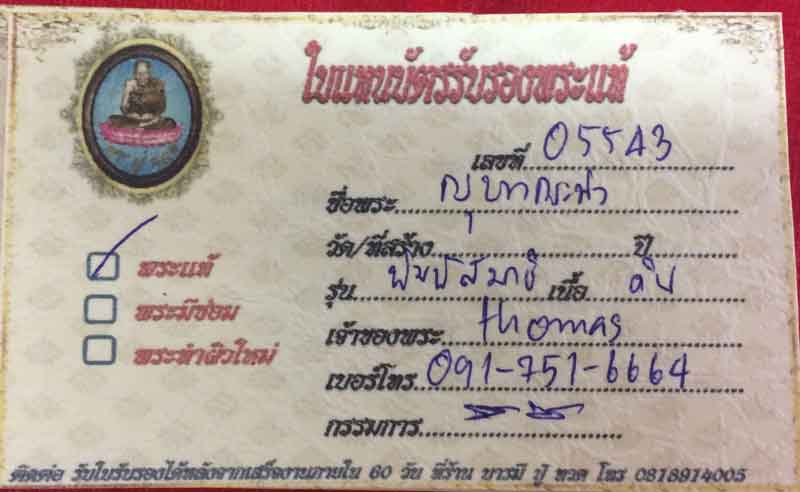 ใบแทนบัตรรับรองพระแท้
เลขที่ 05543
ชื่อพระ
วัด/ที่สร้าง ปี
พระแท้
รุ่น พิมพ์สมาธิ เนื้อ ดิน
พระมีซ่อม
เจ้าของพระ thomas
พระทำผิวใหม่
เบอร์โทร. 091-751-6664
กรรมการ
ติดต่อ รับใบรับรองได้หลังจากเสร็จงานภายใน 60 วัน ที่ร้าน บารมี ปู่ ทวด โทร 0818914005